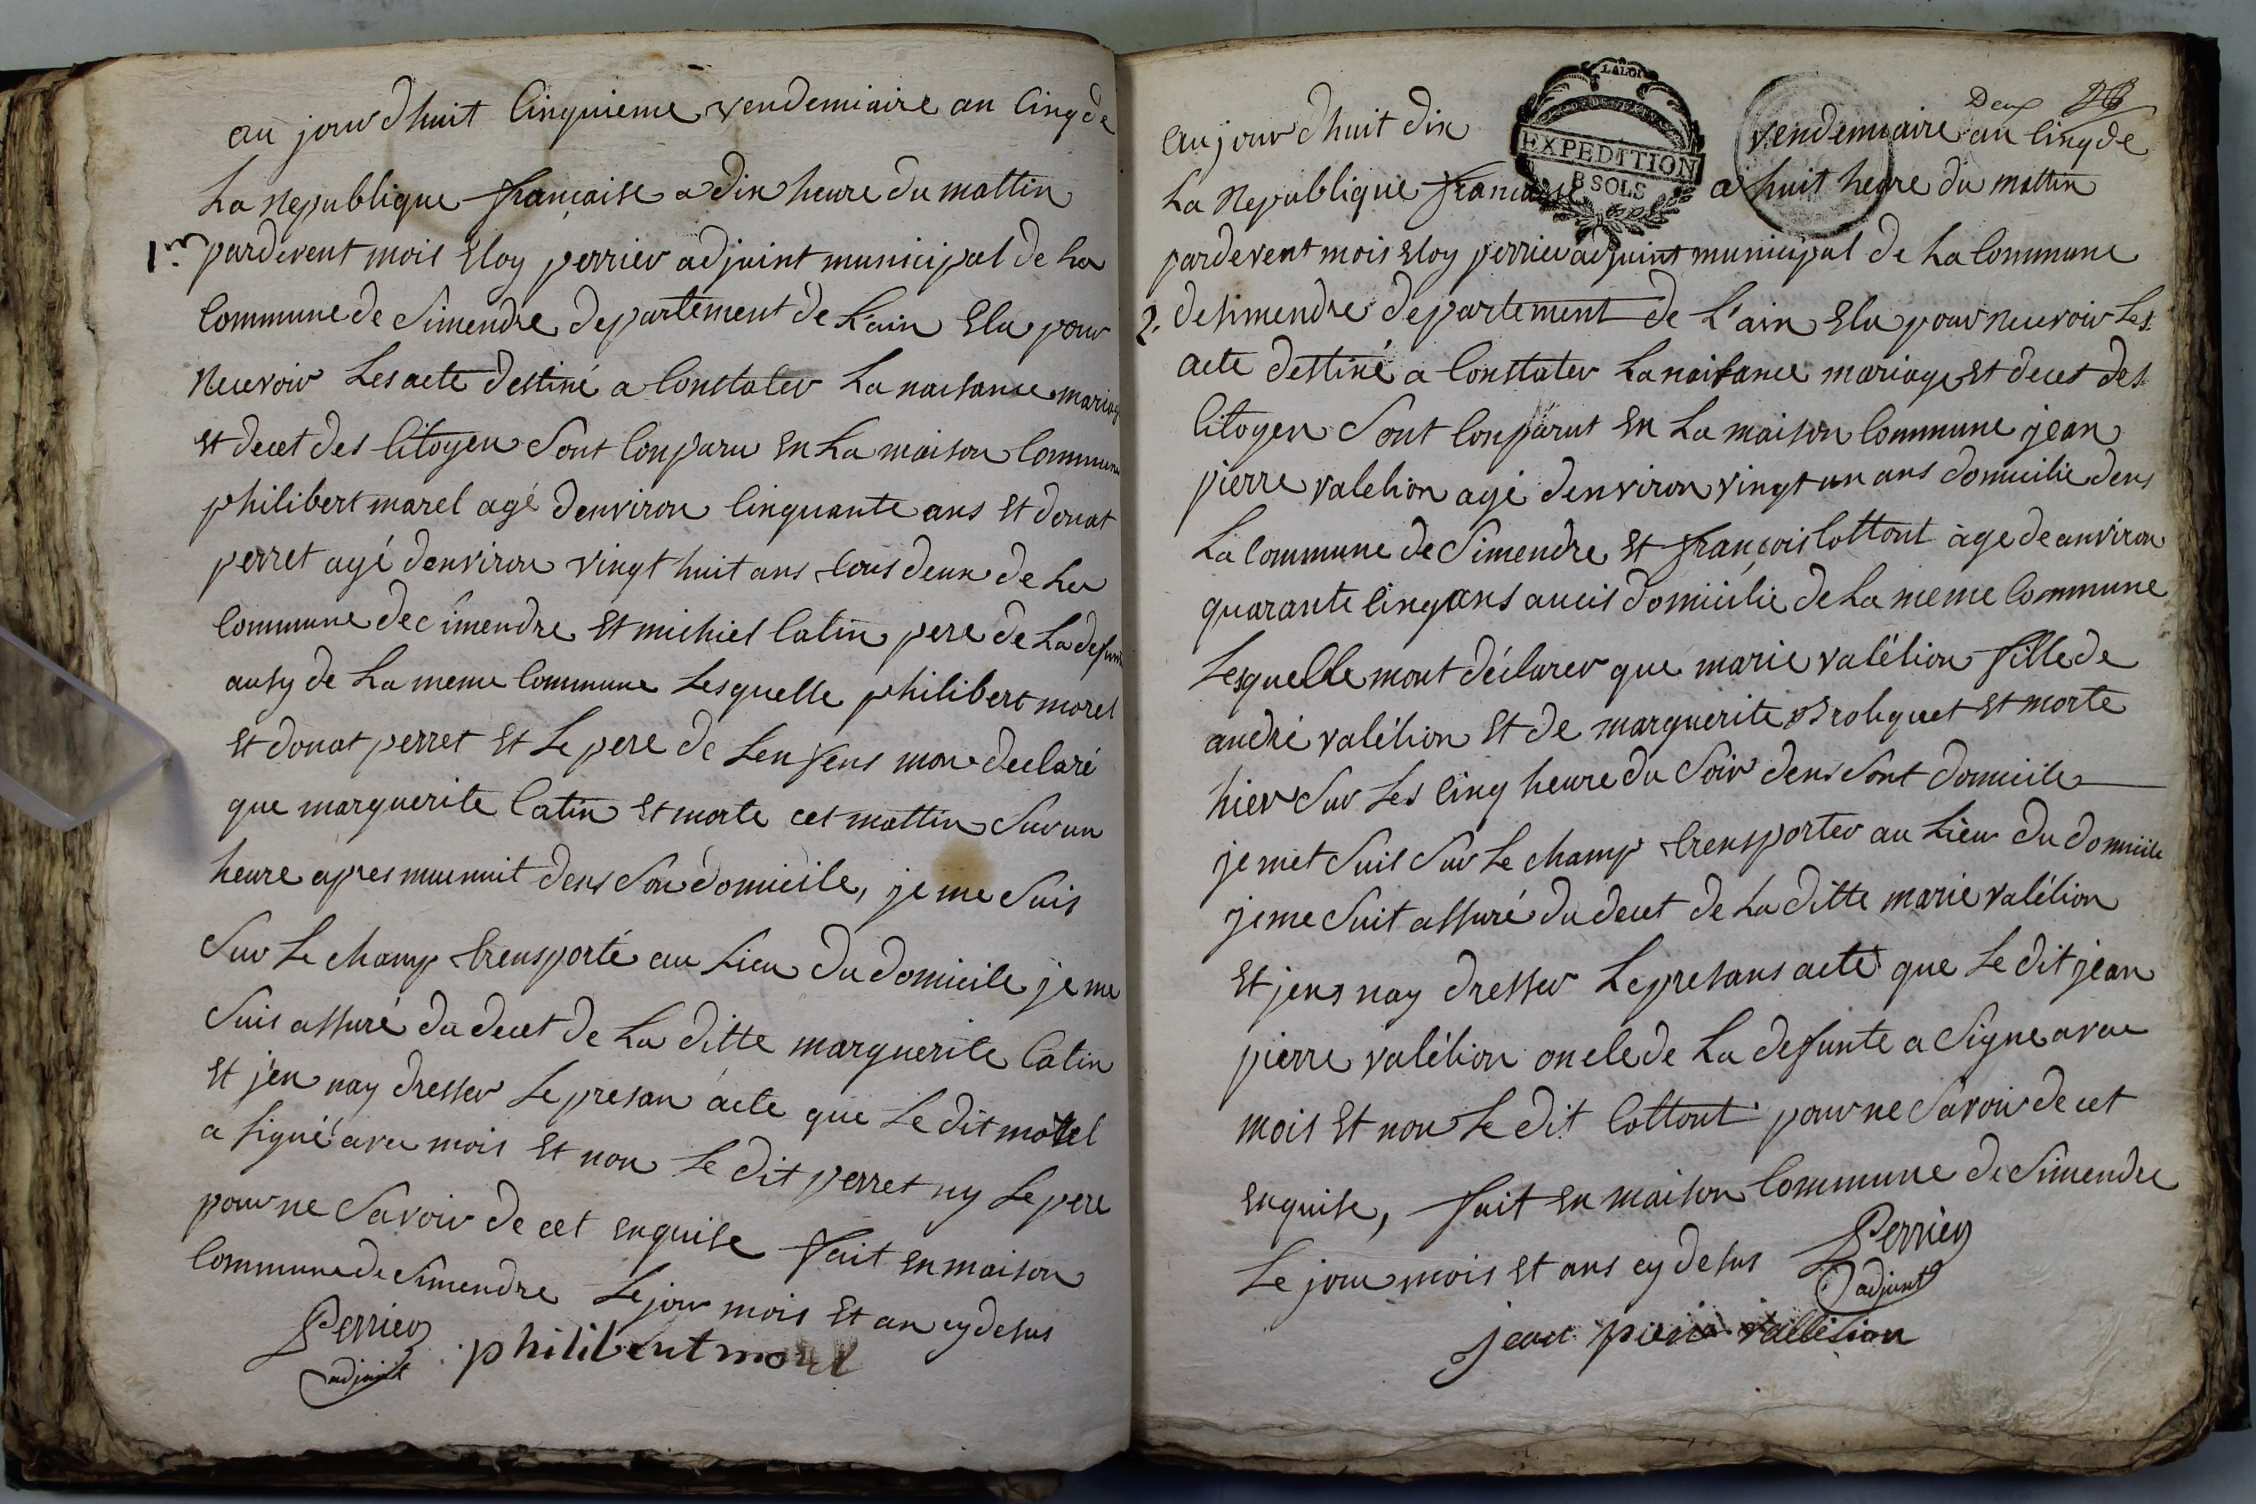 au jourdhuit Cinquieme vendemiaire an Cinq de
La Republique française a dix heure du mattin
1er pardevent mois Eloy perrier adjoint municipal de La
Commune de Simendre departement de L'ain Elu pour
Recevoir Les acte destiné a Constater La naisance mariage
Et decet des Citoyen Sont Conparu En La maison Commune
philibert morel agé denviron Cinquante ans Et donat
perret agé denviron vingt huit ans tous deux de La
Commune de Cimendre Et michiel Catin pere de La defunte
ausy de La meme Commune Lesquelle philibert morel
Et donat perret Et Le pere de Lenfens mon declaré
que marguerite Catin Et morte cet mattin Sur un
heure apres minuit dens Son domicile, je me Suis
Sur Le champ trensporté au Lieu du domicile je me
Suis assuré du decet de La ditte marguerite Catin
Et j'en nay dresser Le presan acte que Le dit morel
a signé avec mois Et non Le dit perret ny Le pere
pour ne Savoir de cet enquise fait En maison
Commune de Simendre Le jour mois Et an cy desus
Perrier
adjoint
philibert morel
LA LOI
EXPEDITION
8 SOLS
Deux
Aujourdhuit dix vendemiaire an Cinq de
La Republique française a huit heure du mattin
pardevent mois Eloy perrier adjoint municipal de La Commune
2. de simendre departement de L'ain Elu pour Recevoir Les
acte destiné a Constater La naisance mariage Et decet des
Citoyen Sont Conparut En La maison Commune jean
pierre valelion agé denviron vingt un ans domicilie dens
La Commune de Simendre Et françois Cottont àge de anviron
quarante Cinq ans aucis domicilie de La meme Commune
Lesquelle mont déclarer que marie valélion fille de
andré valélion Et de marguerite Broliquet Et morte
hier Sur Les Cinq heure du Soir dens Sont domicile
je met Suis Sur Le champ trensporter au Lieu du domicile
je me Suit assuré du decet de La ditte marie valélion
Et jens nay dresser Le presans acte que Le dit jean
pierre valélion oncle de La defunte a Signe avec
mois Et non Le dit Cottont pour ne Savoir de cet
enquise, fait En maison Commune de Simendre
Le jour mois Et ans cy desus
Perrier
adjoint
jean piere vallelion